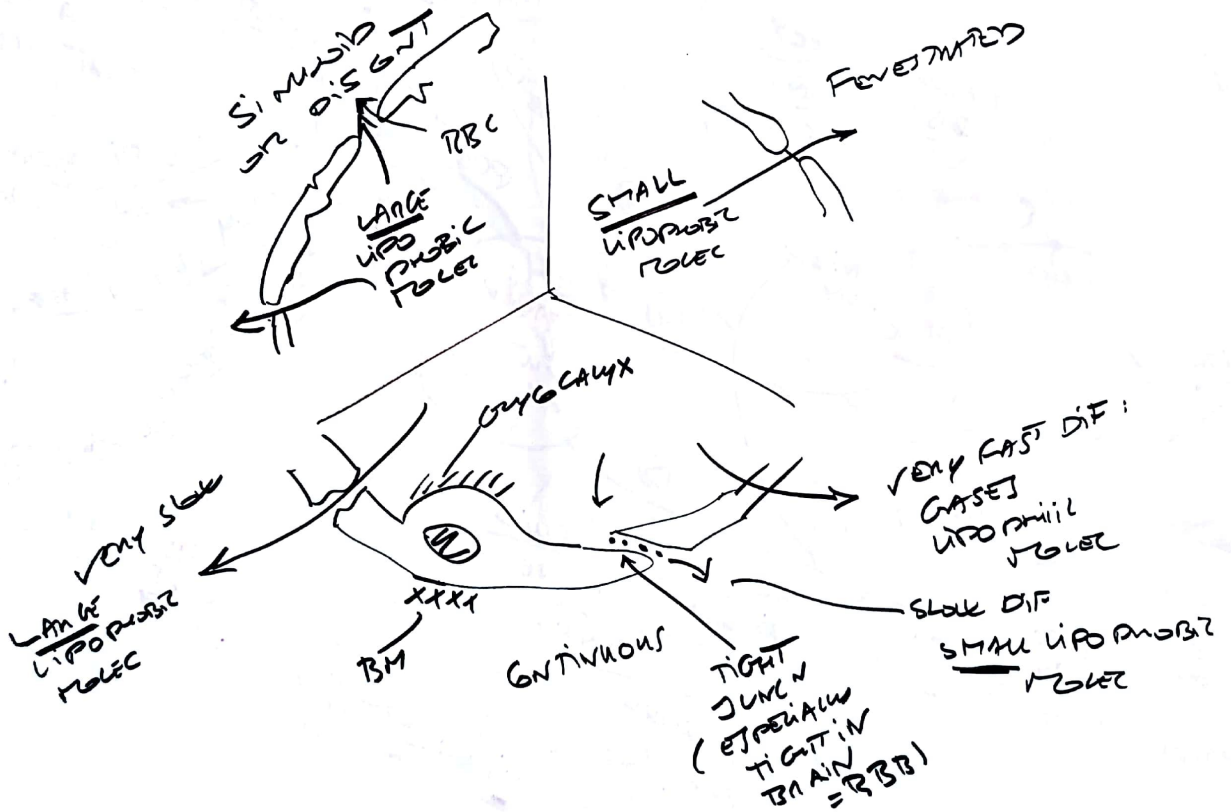 SINUSOID
OR DISCONT
RBC
LARGE
LIPO
PHOBIC
MOLEC
FENESTRATED
SMALL
LIPOPHOBIC
MOLEC
GLYCOCALYX
VERY SLOW
LARGE
LIPOPHOBIC
MOLEC
XXXX
BM
CONTINUOUS
TIGHT
JUNCN
(ESPECIALLY
TIGHT IN
BRAIN
=BBB)
VERY FAST DIF:
GASES
LIPOPHILIC
MOLEC
SLOW DIF
SMALL LIPOPHOBIC
MOLEC